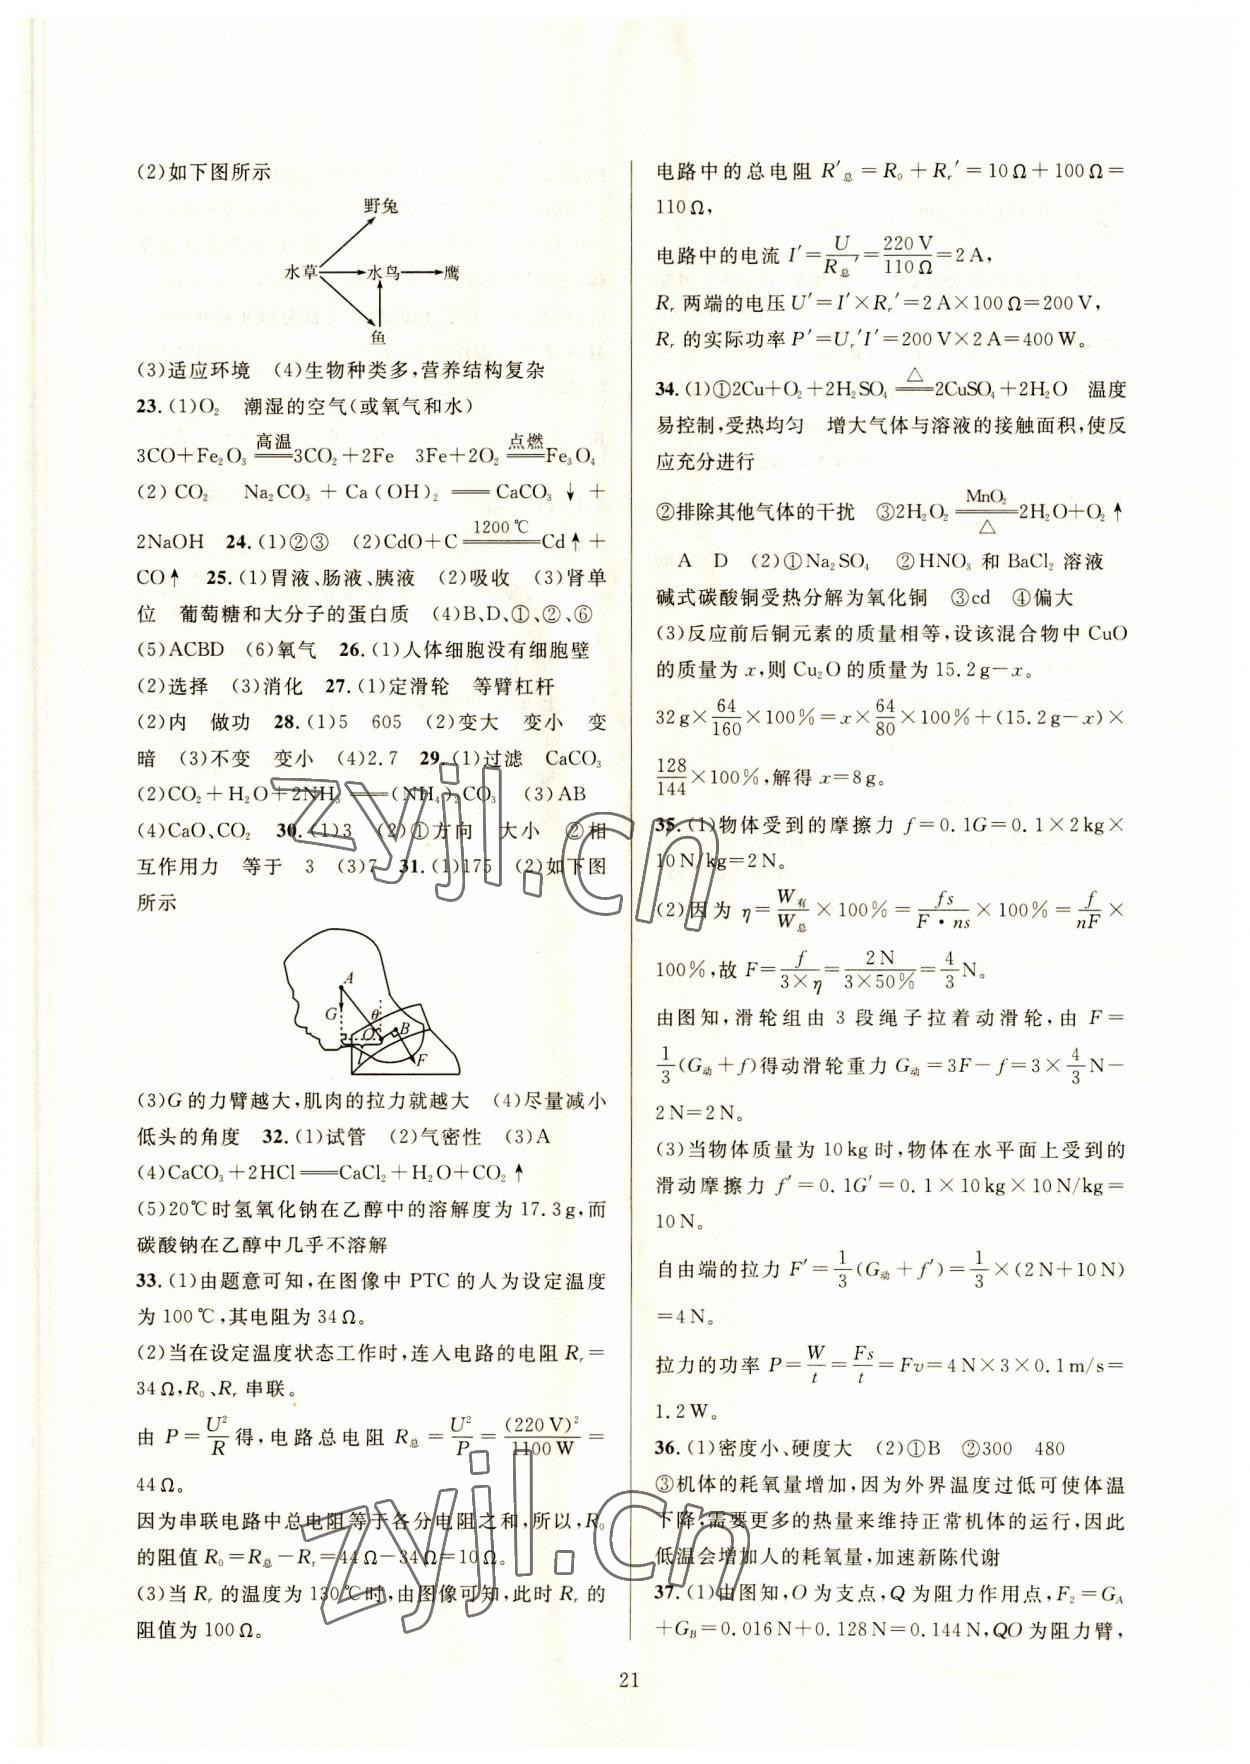 (2)如下图所示
野兔
水草 水鸟 鹰
鱼
(3)适应环境 (4)生物种类多,营养结构复杂
23.(1)O₂ 潮湿的空气(或氧气和水)
3CO+Fe₂O₃ =高温= 3CO₂+2Fe 3Fe+2O₂ =点燃= Fe₃O₄
(2) CO₂ Na₂CO₃ + Ca(OH)₂ == CaCO₃↓ +
2NaOH 24.(1)②③ (2)CdO+C =1200℃= Cd↑+
CO↑ 25.(1)胃液、肠液、胰液 (2)吸收 (3)肾单
位 葡萄糖和大分子的蛋白质 (4)B、D、①、②、⑥
(5)ACBD (6)氧气 26.(1)人体细胞没有细胞壁
(2)选择 (3)消化 27.(1)定滑轮 等臂杠杆
(2)内 做功 28.(1)5 605 (2)变大 变小 变
暗 (3)不变 变小 (4)2.7 29.(1)过滤 CaCO₃
(2)CO₂+H₂O+2NH₃ == (NH₄)₂CO₃ (3)AB
(4)CaO、CO₂ 30.(1)3 (2)①方向 大小 ②相
互作用力 等于 3 (3)7 31.(1)175 (2)如下图
所示
A
G θ
O B
l F
(3)G的力臂越大,肌肉的拉力就越大 (4)尽量减小
低头的角度 32.(1)试管 (2)气密性 (3)A
(4)CaCO₃+2HCl == CaCl₂+H₂O+CO₂↑
(5)20℃时氢氧化钠在乙醇中的溶解度为 17.3g,而
碳酸钠在乙醇中几乎不溶解
33.(1)由题意可知,在图像中 PTC 的人为设定温度
为 100℃,其电阻为 34Ω。
(2)当在设定温度状态工作时,连入电路的电阻 Rᵣ=
34Ω,R₀、Rᵣ 串联。
由 P=U²/R 得,电路总电阻 R总=U²/P=(220 V)²/1100 W=
44Ω。
因为串联电路中总电阻等于各分电阻之和,所以,R₀
的阻值 R₀=R总-Rᵣ=44Ω-34Ω=10Ω。
(3)当 Rᵣ 的温度为 130℃时,由图像可知,此时 Rᵣ 的
阻值为 100Ω。
电路中的总电阻 R′总=R₀+Rᵣ′=10Ω+100Ω=
110Ω,
电路中的电流 I′=U/R总′=220 V/110 Ω=2 A,
Rᵣ 两端的电压 U′=I′×Rᵣ′=2 A×100Ω=200 V,
Rᵣ 的实际功率 P′=Uᵣ′I′=200 V×2 A=400 W。
34.(1)①2Cu+O₂+2H₂SO₄ =△= 2CuSO₄+2H₂O 温度
易控制,受热均匀 增大气体与溶液的接触面积,使反
应充分进行
②排除其他气体的干扰 ③2H₂O₂ =MnO₂/△= 2H₂O+O₂↑
A D (2)①Na₂SO₄ ②HNO₃ 和 BaCl₂ 溶液
碱式碳酸铜受热分解为氧化铜 ③cd ④偏大
(3)反应前后铜元素的质量相等,设该混合物中 CuO
的质量为 x,则 Cu₂O 的质量为 15.2 g-x。
32 g×64/160×100%=x×64/80×100%+(15.2 g-x)×
128/144×100%,解得 x=8 g。
35.(1)物体受到的摩擦力 f=0.1G=0.1×2 kg×
10 N/kg=2 N。
(2)因为 η=W有/W总×100%=fs/F·ns×100%=f/nF×
100%,故 F=f/3×η=2 N/3×50%=4/3 N。
由图知,滑轮组由 3 段绳子拉着动滑轮,由 F=
1/3(G动+f)得动滑轮重力 G动=3F-f=3×4/3 N-
2 N=2 N。
(3)当物体质量为 10 kg 时,物体在水平面上受到的
滑动摩擦力 f′=0.1G′=0.1×10 kg×10 N/kg=
10 N。
自由端的拉力 F′=1/3(G动+f′)=1/3×(2 N+10 N)
=4 N。
拉力的功率 P=W/t=Fs/t=Fv=4 N×3×0.1 m/s=
1.2 W。
36.(1)密度小、硬度大 (2)①B ②300 480
③机体的耗氧量增加,因为外界温度过低可使体温
下降,需要更多的热量来维持正常机体的运行,因此
低温会增加人的耗氧量,加速新陈代谢
37.(1)由图知,O 为支点,Q 为阻力作用点,F₂=G_A
+G_B=0.016 N+0.128 N=0.144 N,QO 为阻力臂,
21
zyjl.cn
zyjl.cn